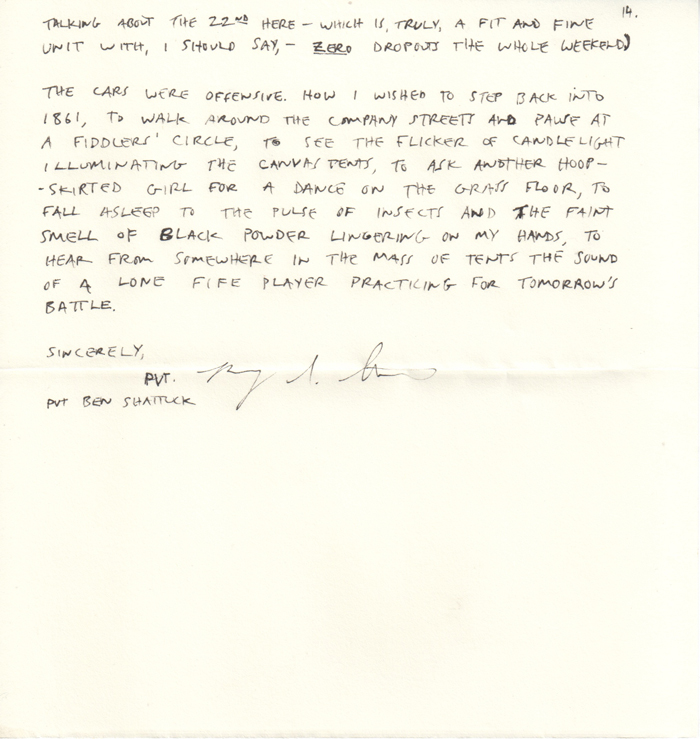 14.
TALKING ABOUT THE 22ND HERE – WHICH IS, TRULY, A FIT AND FINE
UNIT WITH, I SHOULD SAY, – ZERO DROPOUTS THE WHOLE WEEKEND)
THE CARS WERE OFFENSIVE. HOW I WISHED TO STEP BACK INTO
1861, TO WALK AROUND THE COMPANY STREETS AND PAUSE AT
A FIDDLERS' CIRCLE, TO SEE THE FLICKER OF CANDLELIGHT
ILLUMINATING THE CANVAS TENTS, TO ASK ANOTHER HOOP–
-SKIRTED GIRL FOR A DANCE ON THE GRASS FLOOR, TO
FALL ASLEEP TO THE PULSE OF INSECTS AND THE FAINT
SMELL OF BLACK POWDER LINGERING ON MY HANDS, TO
HEAR FROM SOMEWHERE IN THE MASS OF TENTS THE SOUND
OF A LONE FIFE PLAYER PRACTICING FOR TOMORROW'S
BATTLE.
SINCERELY,
PVT.
PVT BEN SHATTUCK